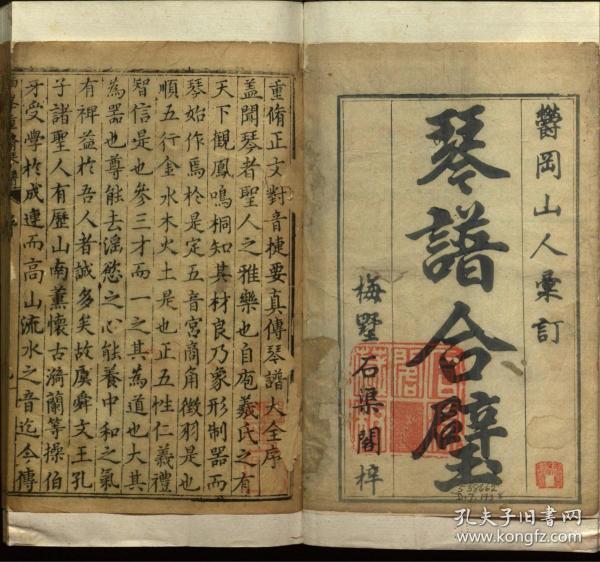 鬱岡山人彙訂
琴譜合璧
梅墅石渠閣梓
重脩正文對音捷要真傳琴譜大全序
蓋聞琴者聖人之雅樂也自庖羲氏之有
天下觀鳳鳴桐知其材良乃象形制器而
琴始作焉於是定五音宮商角徵羽是也
順五行金水木火土是也正五性仁義禮
智信是也參三才而一之其為道也大其
為器也尊能去滛慾之心能養中和之氣
有裨益於吾人者誠多矣故虞舜文王孔
子諸聖人有歷山南薰懷古漪蘭等操伯
牙受學於成連而高山流水之音迄今傳
孔夫子旧书网
www.kongfz.com